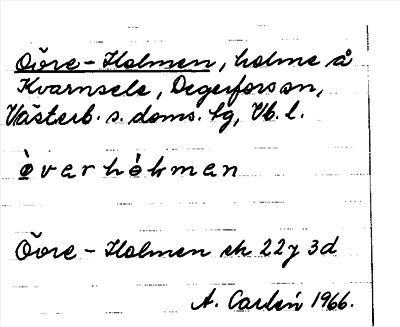 Övre-Holmen, holme å
Kvarnsele, Degerfors sn,
Västerb. s. doms. lg, Vb. l.
òvarhòkman
Övre-Holmen ek 22J 3d
A. Carlén 1966.